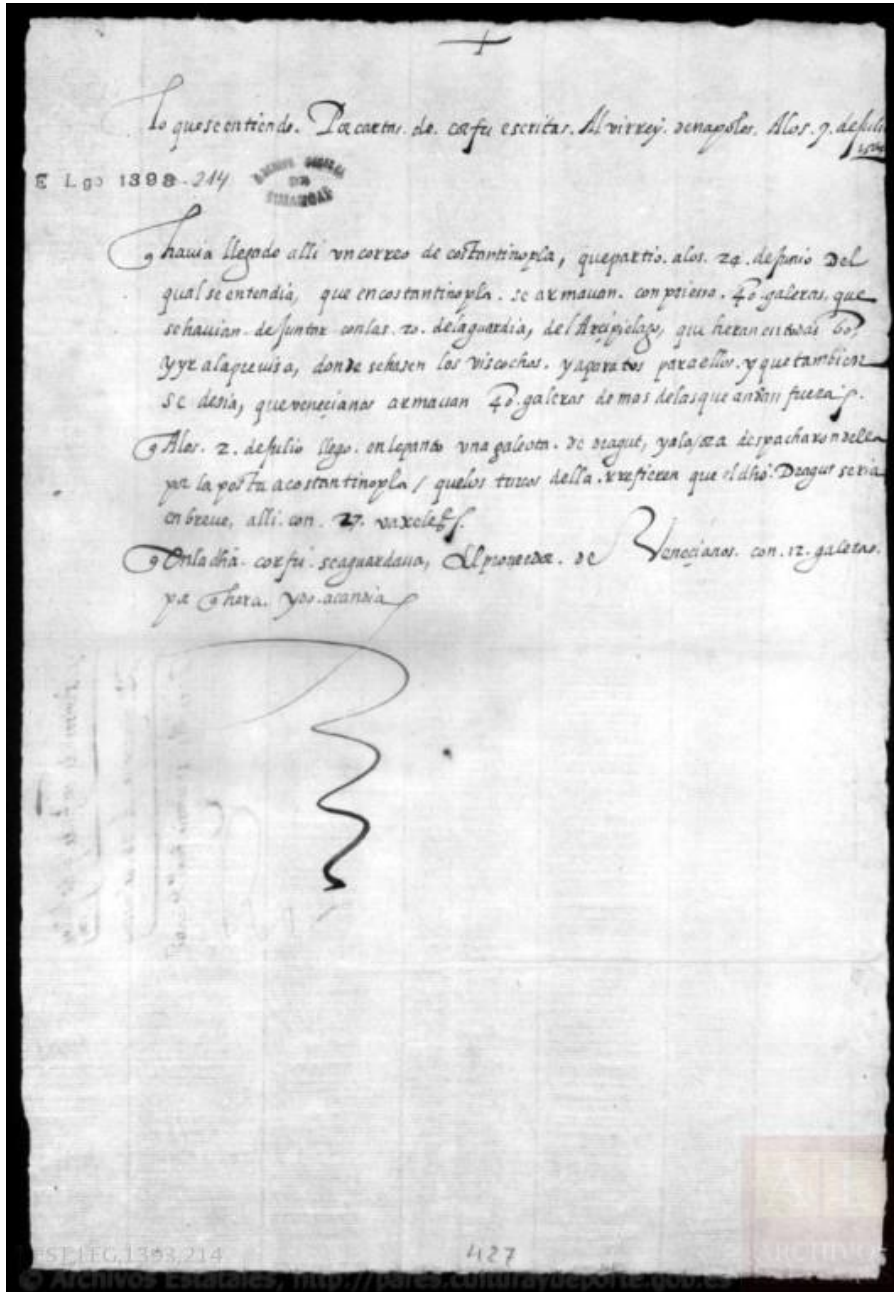 +
Lo que se entiende. Por cartas. de. corfu escritas. Al virrey. de napoles. A los. 9. de Julio
E Lgo 1393-214
ARCHIVO GENERAL DE SIMANCAS
q havia llegado alli un correo de costantinopla, que partio. a los. 24. de Junio Del
qual se entendia, que en costantinopla. se armavan. con priessa. 40. galeras, que
se havian. de Juntar con las. 20. de la guardia, del Arcipielago, que heran en todas 60,
y yr a la previsa, donde se hasen los viscochos. y aparatos para ellos. y que tambien
se desia, que venecianos armavan 40. galeras de mas de las que andan fuera
A los. 2. de Julio llego. en lepanto una galeota. de dragut, y a la ora despacharon della
por la posta a costantinopla / que los turcos della. rrefieren que el dho. Dragut seria
en breve, alli. con. 27. vaxeles.
En la dha. corfu. se aguardava, El proveedor. de Venecianos. con. 12. galeras.
por hera. ydo. a candia
EST,LEG,1393,214
427
ARCHIVOS
© Archivos Estatales, http://pares.culturaydeporte.gob.es